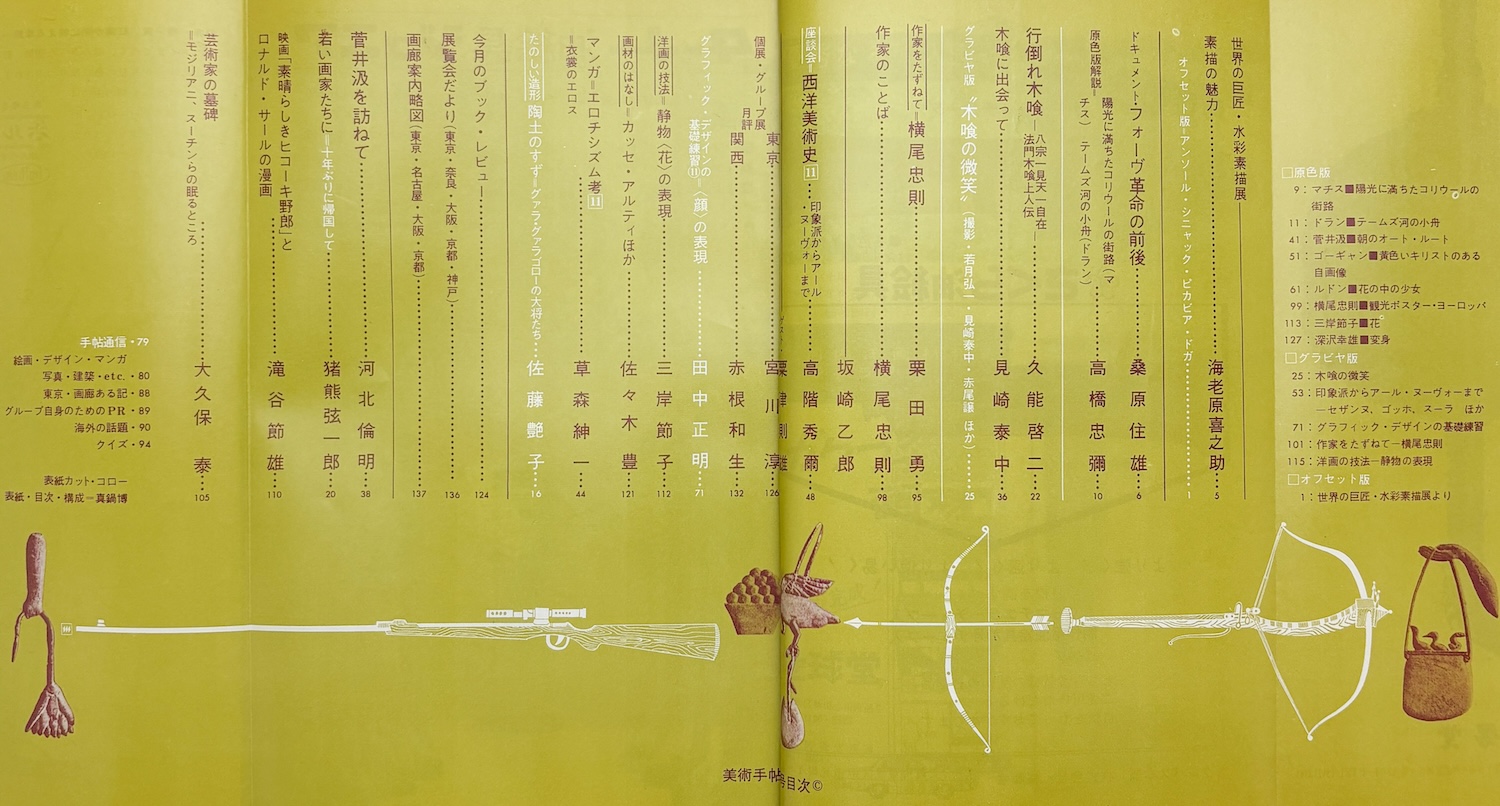 世界の巨匠・水彩素描展
素描の魅力……海老原喜之助……5
オフセット版=アンソール・シニャック・ピカビア・ドガ……1
ドキュメント・フォーヴ革命の前後……桑原住雄……6
原色版解説=陽光に満ちたコリウールの街路(マチス) テームズ河の小舟(ドラン)……高橋忠彌……10
行倒れ木喰—八宗一見天一自在法門木喰上人伝—……久能啓二……22
木喰に出会って……見崎泰中……36
グラビヤ版 〝木喰の微笑〟(撮影・若月弘一・見崎泰中・赤尾譲 ほか)……25
作家をたずねて=横尾忠則……栗田勇……95
作家のことば……横尾忠則……98
坂崎乙郎
座談会=西洋美術史11…印象派からアール・ヌーヴォーまで……高階秀爾……48
個展・グループ展月評
東京……宮川淳……126
関西……赤根和生……132
グラフィック・デザインの基礎練習⑪=〈顔〉の表現……田中正明……71
洋画の技法=静物〈花〉の表現……三岸節子……112
画材のはなし=カッセ・アルティほか……佐々木豊……121
マンガ=エロチシズム考11
=衣裳のエロス……草森紳一……44
たのしい造形 陶土のすず=グァラ・グァラゴローの大将たち……佐藤艶子……16
今月のブック・レビュー……124
展覧会だより(東京・奈良・大阪・京都・神戸)……136
画廊案内略図(東京・名古屋・大阪・京都)……137
菅井汲を訪ねて……河北倫明……38
若い画家たちに=十年ぶりに帰国して……猪熊弦一郎……20
映画「素晴らしきヒコーキ野郎」と
ロナルド・サールの漫画……滝谷節雄……110
芸術家の墓碑
=モジリアニ、スーチンらの眠るところ……大久保泰……105
□原色版
9:マチス■陽光に満ちたコリウールの
街路
11:ドラン■テームズ河の小舟
41:菅井汲■朝のオート・ルート
51:ゴーギャン■黄色いキリストのある
自画像
61:ルドン■花の中の少女
99:横尾忠則■観光ポスター・ヨーロッパ
113:三岸節子■花
127:深沢幸雄■変身
□グラビヤ版
25:木喰の微笑
53:印象派からアール・ヌーボーまで
—セザンヌ、ゴッホ、スーラ ほか
71:グラフィック・デザインの基礎練習
101:作家をたずねて—横尾忠則
115:洋画の技法—静物の表現
□オフセット版
1:世界の巨匠・水彩素描展より
手帖通信・79
絵画・デザイン・マンガ
写真・建築・etc.・80
東京・画廊ある記・88
グループ自身のためのPR・89
海外の話題・90
クイズ・94
表紙カット・コロー
表紙・目次・構成=真鍋博
美術手帖
号目次©